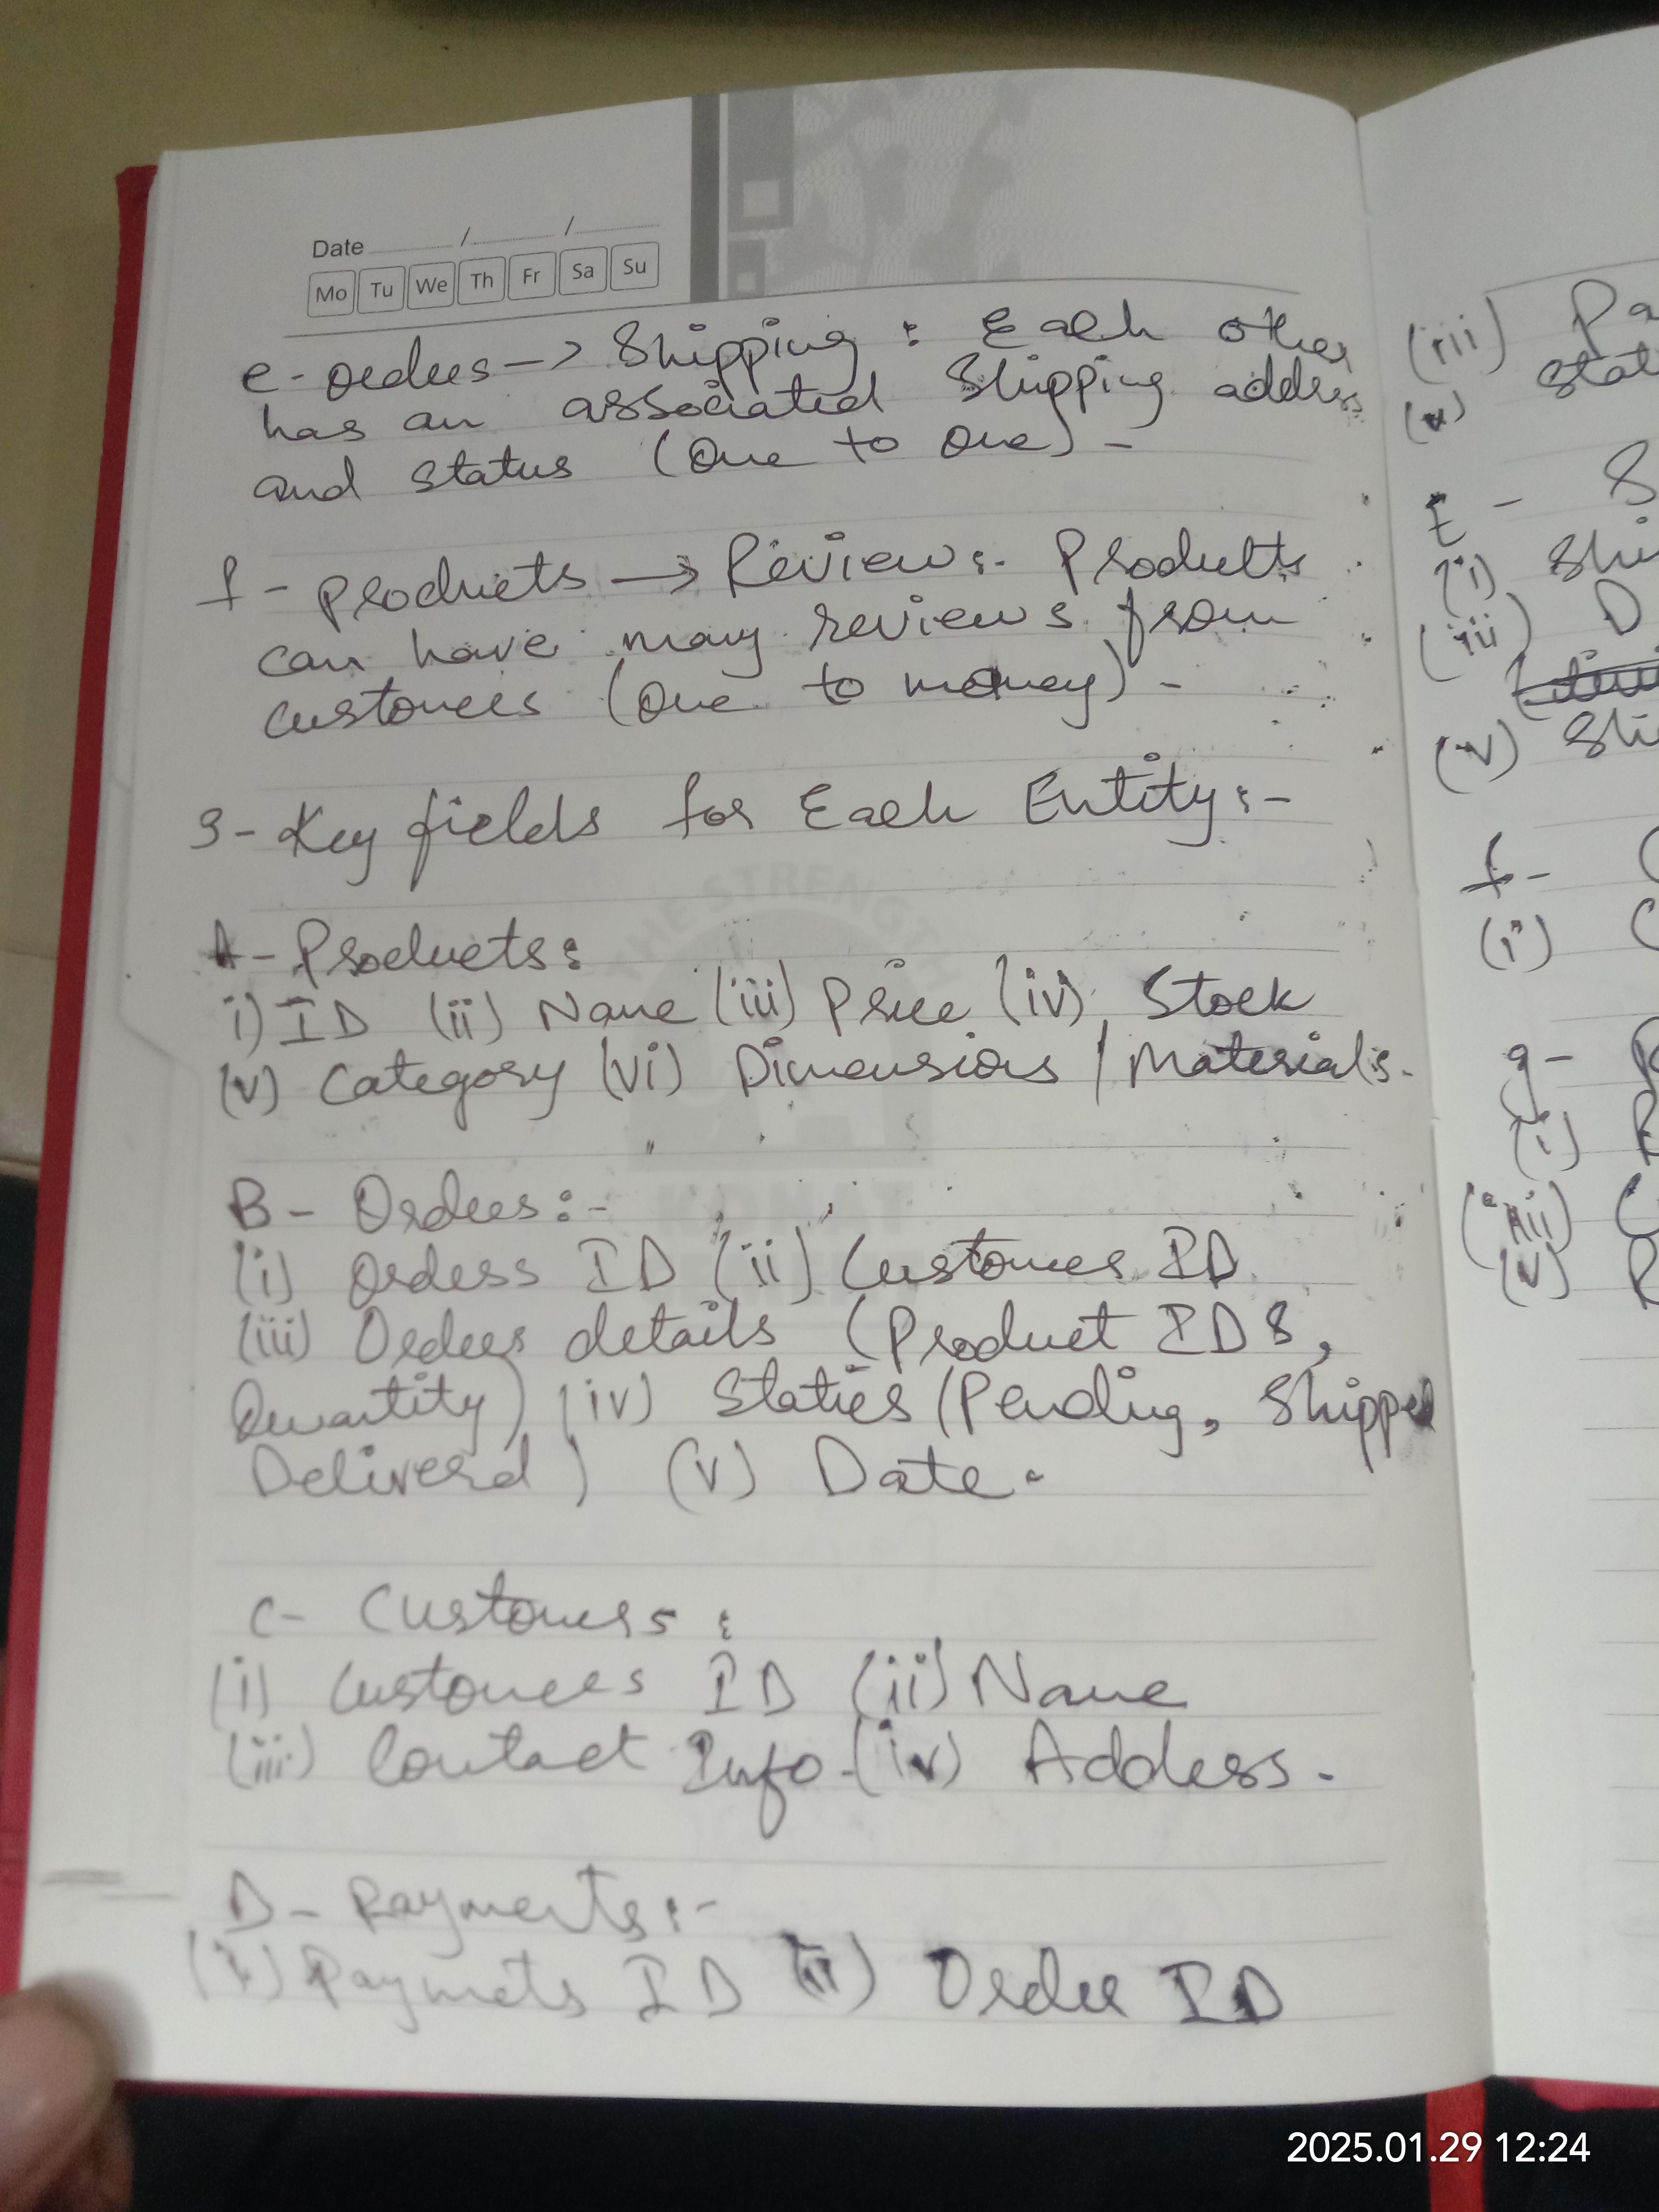 Date / /
Mo Tu We Th Fr Sa Su
e- orders -> Shipping : Each other
has an associated Shipping address
and status (One to One) -
f - products -> Review :- Products
can have many reviews from
customers (One to money) -
3- Key fields for Each Entity :-
A- Products :
i) ID (ii) Name (iii) Price (iv) Stock
(v) Category (vi) Dimensions / Materials.
B - Orders :-
(i) Orders ID (ii) Customer ID
(iii) Orders details (Product IDS,
Quantity) (iv) Staties (Pending, Shipped
Deliverd) (v) Date.
C- Customers :
(i) Customers ID (ii) Name
(iii) Contact Info. (iv) Address.
D- Payments :-
(i) Paymets ID (ii) Order ID
THE STRENGTH
(iii) Pa
Stat
E -
(i) Shi
(iii) D
(v) Shi
f -
(i)
g -
(i) R
(iii) C
(v) R
2025.01.29 12:24